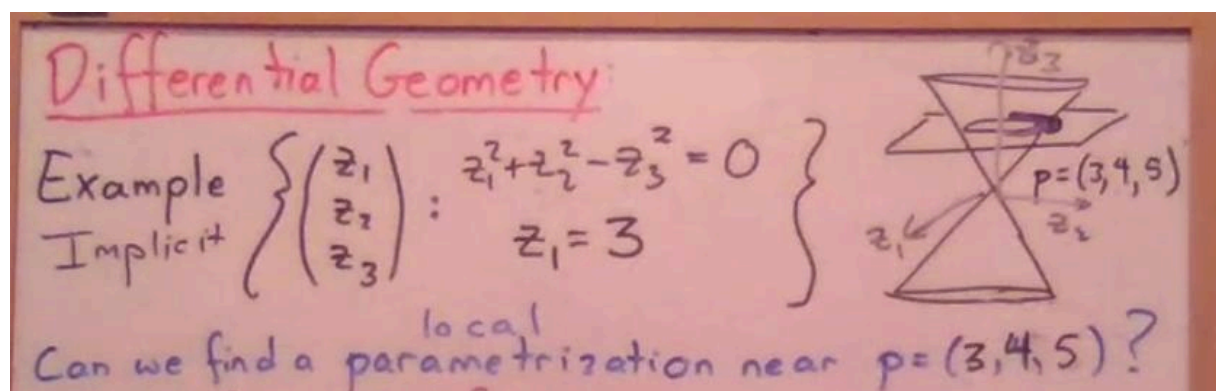 Differential Geometry:
Example
Implicit
{(z₁ z₂ z₃) : z₁²+z₂²-z₃² = 0
z₁ = 3}
z₃
p=(3,4,5)
z₁
z₂
local
Can we find a parametrization near p=(3,4,5)?